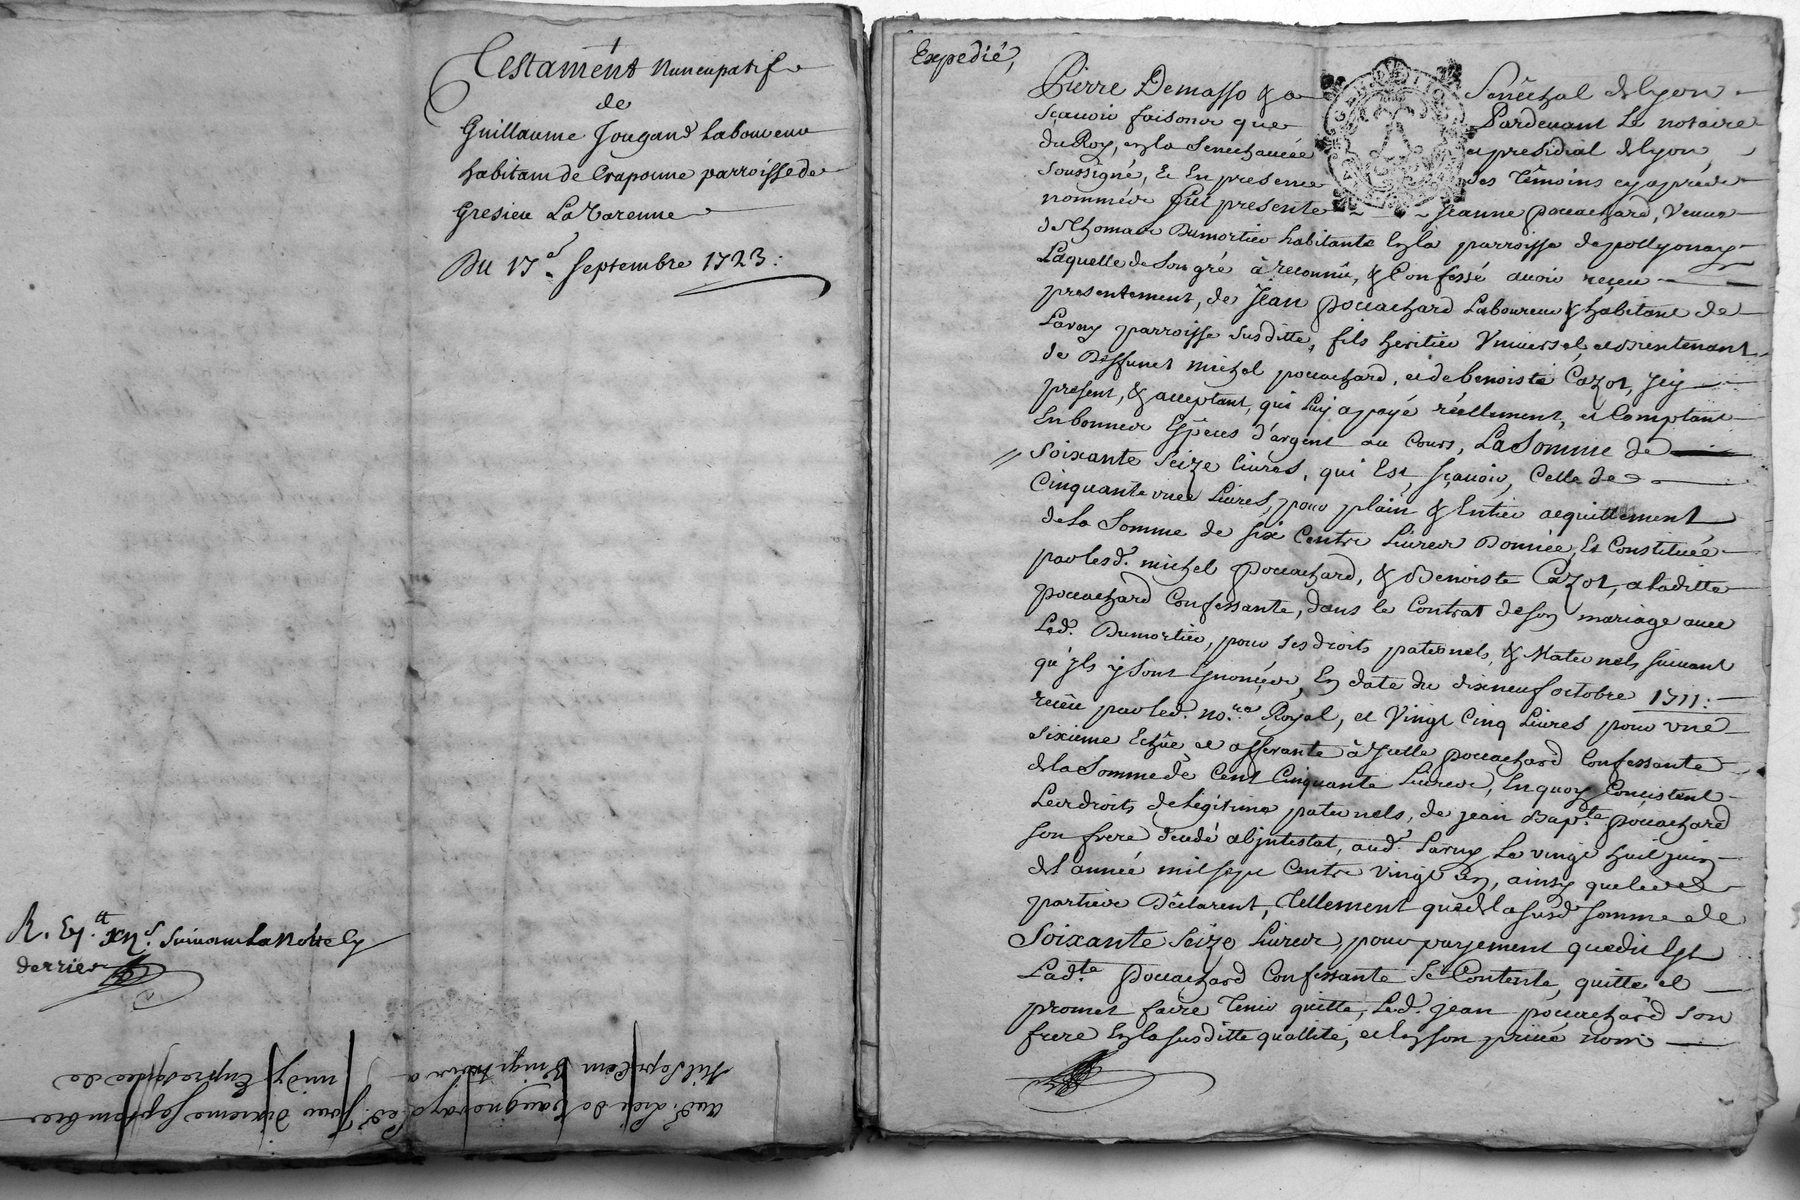 Testament Nuncupatif
de
Guillaume Jougand Laboureur
habitant de Craponne parroisse de
Gresieu La Varenne
Du 17e. Septembre 1723:
R. Suivant La Notte cy
derrier
mil sept Cent Vingt trois a midy En presence de
aud. lieu de jour dixieme septembre
Expedié,
Pierre Demasso & a Senechal de Lyon
Sçavoir faisons que Pardevant Le notaire
du Roy, en la Senechaucée et presidial de Lyon,
Soussigné, Et En presence des Temoins cy aprés
nommés fut presente Jeanne pouachard, Veuve
de Thomas Dumortier habitante En la parroisse de pollyonay
Laquelle de Son gré à reconnû, & Confessé avoir reçeu
presentement, de Jean pouachard Laboureur & habitant de
Larny parroisse Susditte, fils heritier Vniversel, et Bientenant
de Deffunct michel pouachard, et de benoiste Cazot, Icy
present, & acceptant, qui luy a payé réellement, et Comptant
En bonnes Espèces d'argent au Cours, La Somme de
Soixante Seize Livres, qui Est, sçavoir, Celle de
Cinquante vne Livres, pour plain & Entier acquittement
de la Somme de Six Cents Livres Donnée, Et Constituée
par lesd. michel pouachard, & Benoiste Cazot, a laditte
pouachard Confessante, dans le Contrat de Son mariage avec
Led. Dumortier, pour Ses droits paternels, & Maternels suivant
qu'yls y Sont Enoncés, En date du dixneuf octobre 1711:
reçeu par led. no.re Royal, et Vingt Cinq Livres pour vne
Sixieme Echûe, et afferante à Icelle pouachard Confessante
de la Somme de Cent Cinquante Livres, En quoy Concistent
Les droits de Legitime paternels, de jean Bap.te pouachard
Son frere decedé abjntestat, aud. Larny Le vingt huit juin
de L'année mil sept Cents vingt un, ainsy que les
parties Déclarent, Tellement que de la susd. somme de
Soixante Seize Livres, pour payement que dit Est
Lad.te pouachard Confessante Se Contente, quitte et
promet faire Tenir quitte, Led. jean pouachard son
frere En la susditte quallité, et En son privé nom